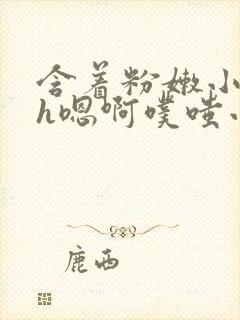 含着粉嫩小
h嗯啊噗嗤小
鹿西